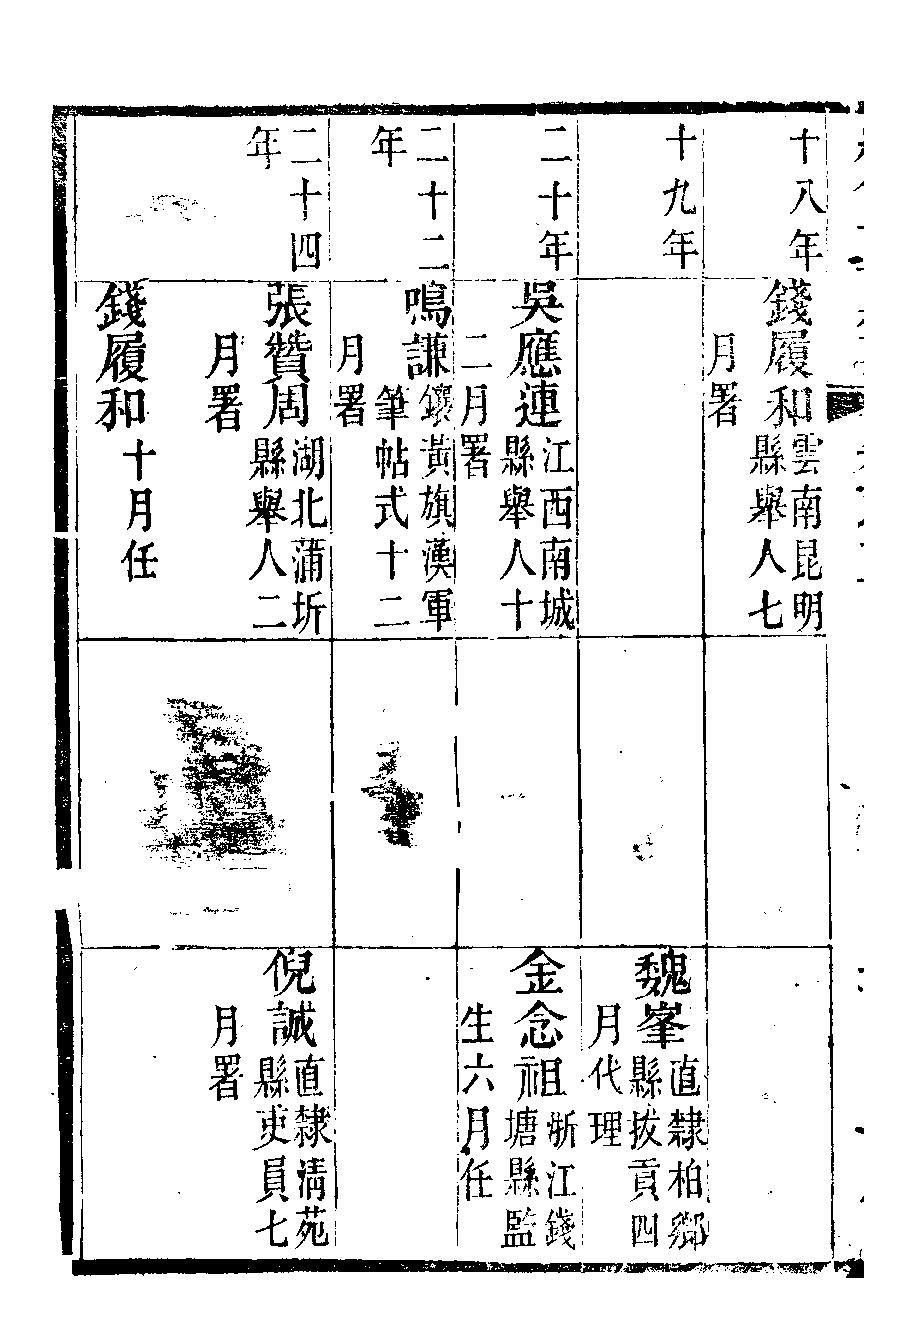 十八年
錢履和雲南昆明
縣舉人七
月署
十九年
魏峯直隸柏鄉
縣拔貢四
月代理
二十年
吳應連江西南城
縣舉人十
二月署
金念祖浙江錢
塘縣監
生六月任
二十二
年
鳴謙鑲黃旗漢軍
筆帖式十二
月署
二十四
年
張贊周湖北蒲圻
縣舉人二
月署
倪誠直隸清苑
縣吏員七
月署
錢履和十月任